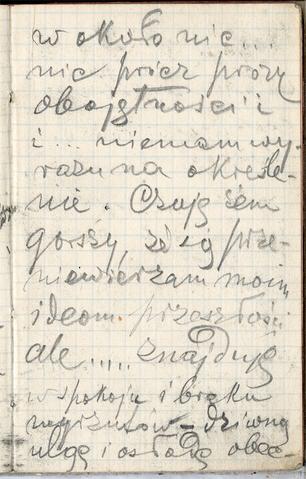 w około nic...
nic prócz prozy
obojętności i
i ... niemam wy-
razu na określe-
nie. Czuję żem
gorszy, że się prze-
niewierzam moim
ideom przeszłości
ale ..... znajduję
w spokoju i braku
wyrzutów - dziwną
ulgę i osłodę obec-